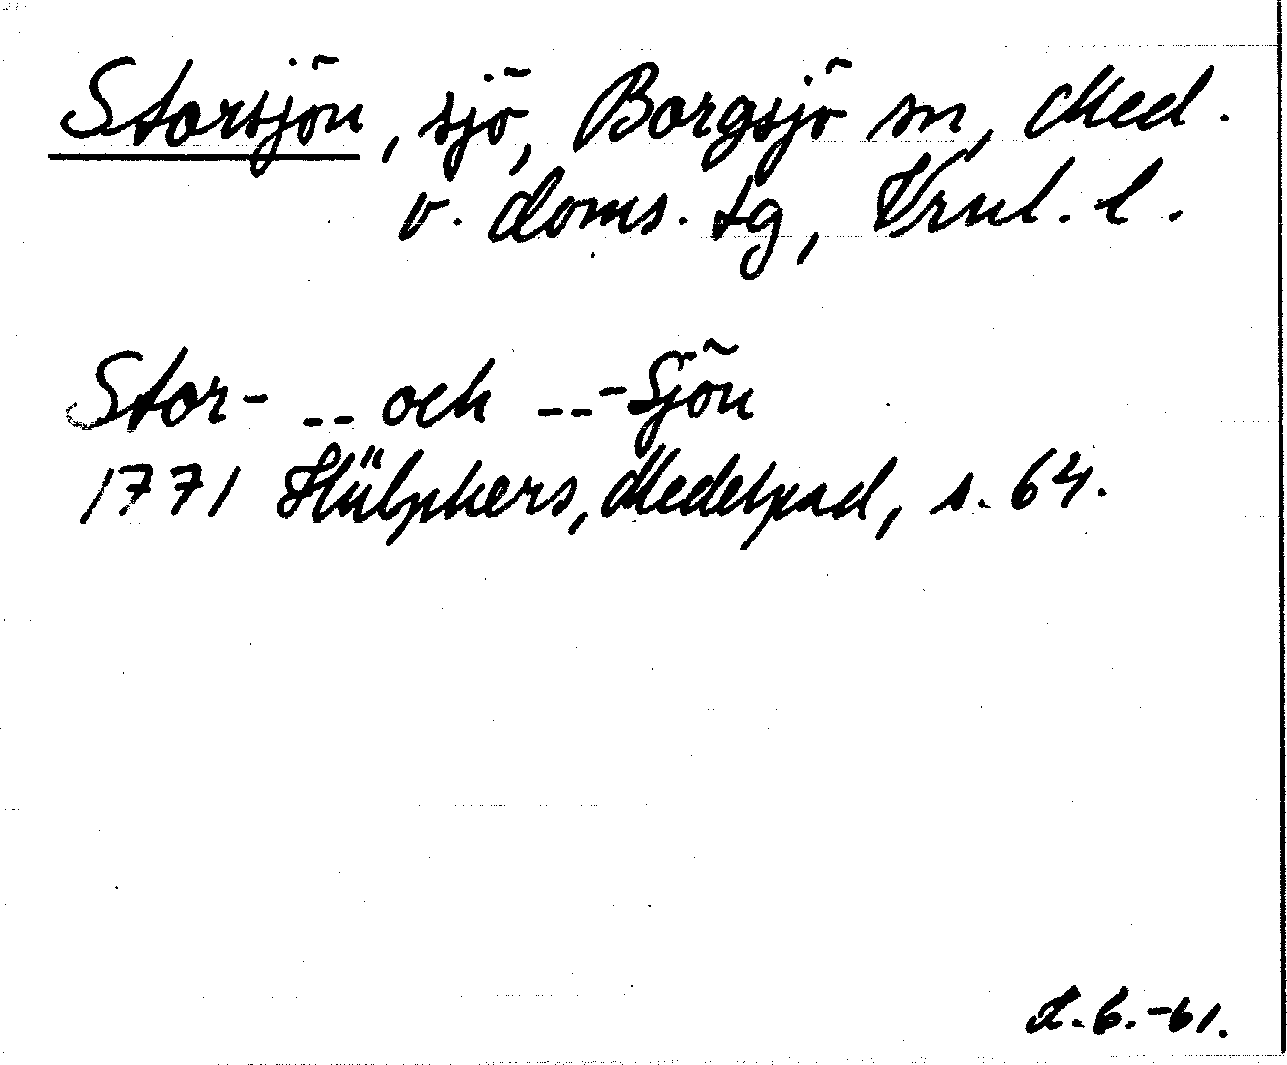 Storsjön, sjö, Borgsjö sn, Med.
v. doms. tg, Vrnl. l.
Stor- -- och ---Sjön
1771 Hülphers, Medelpad, s. 64.
L.B.-61.